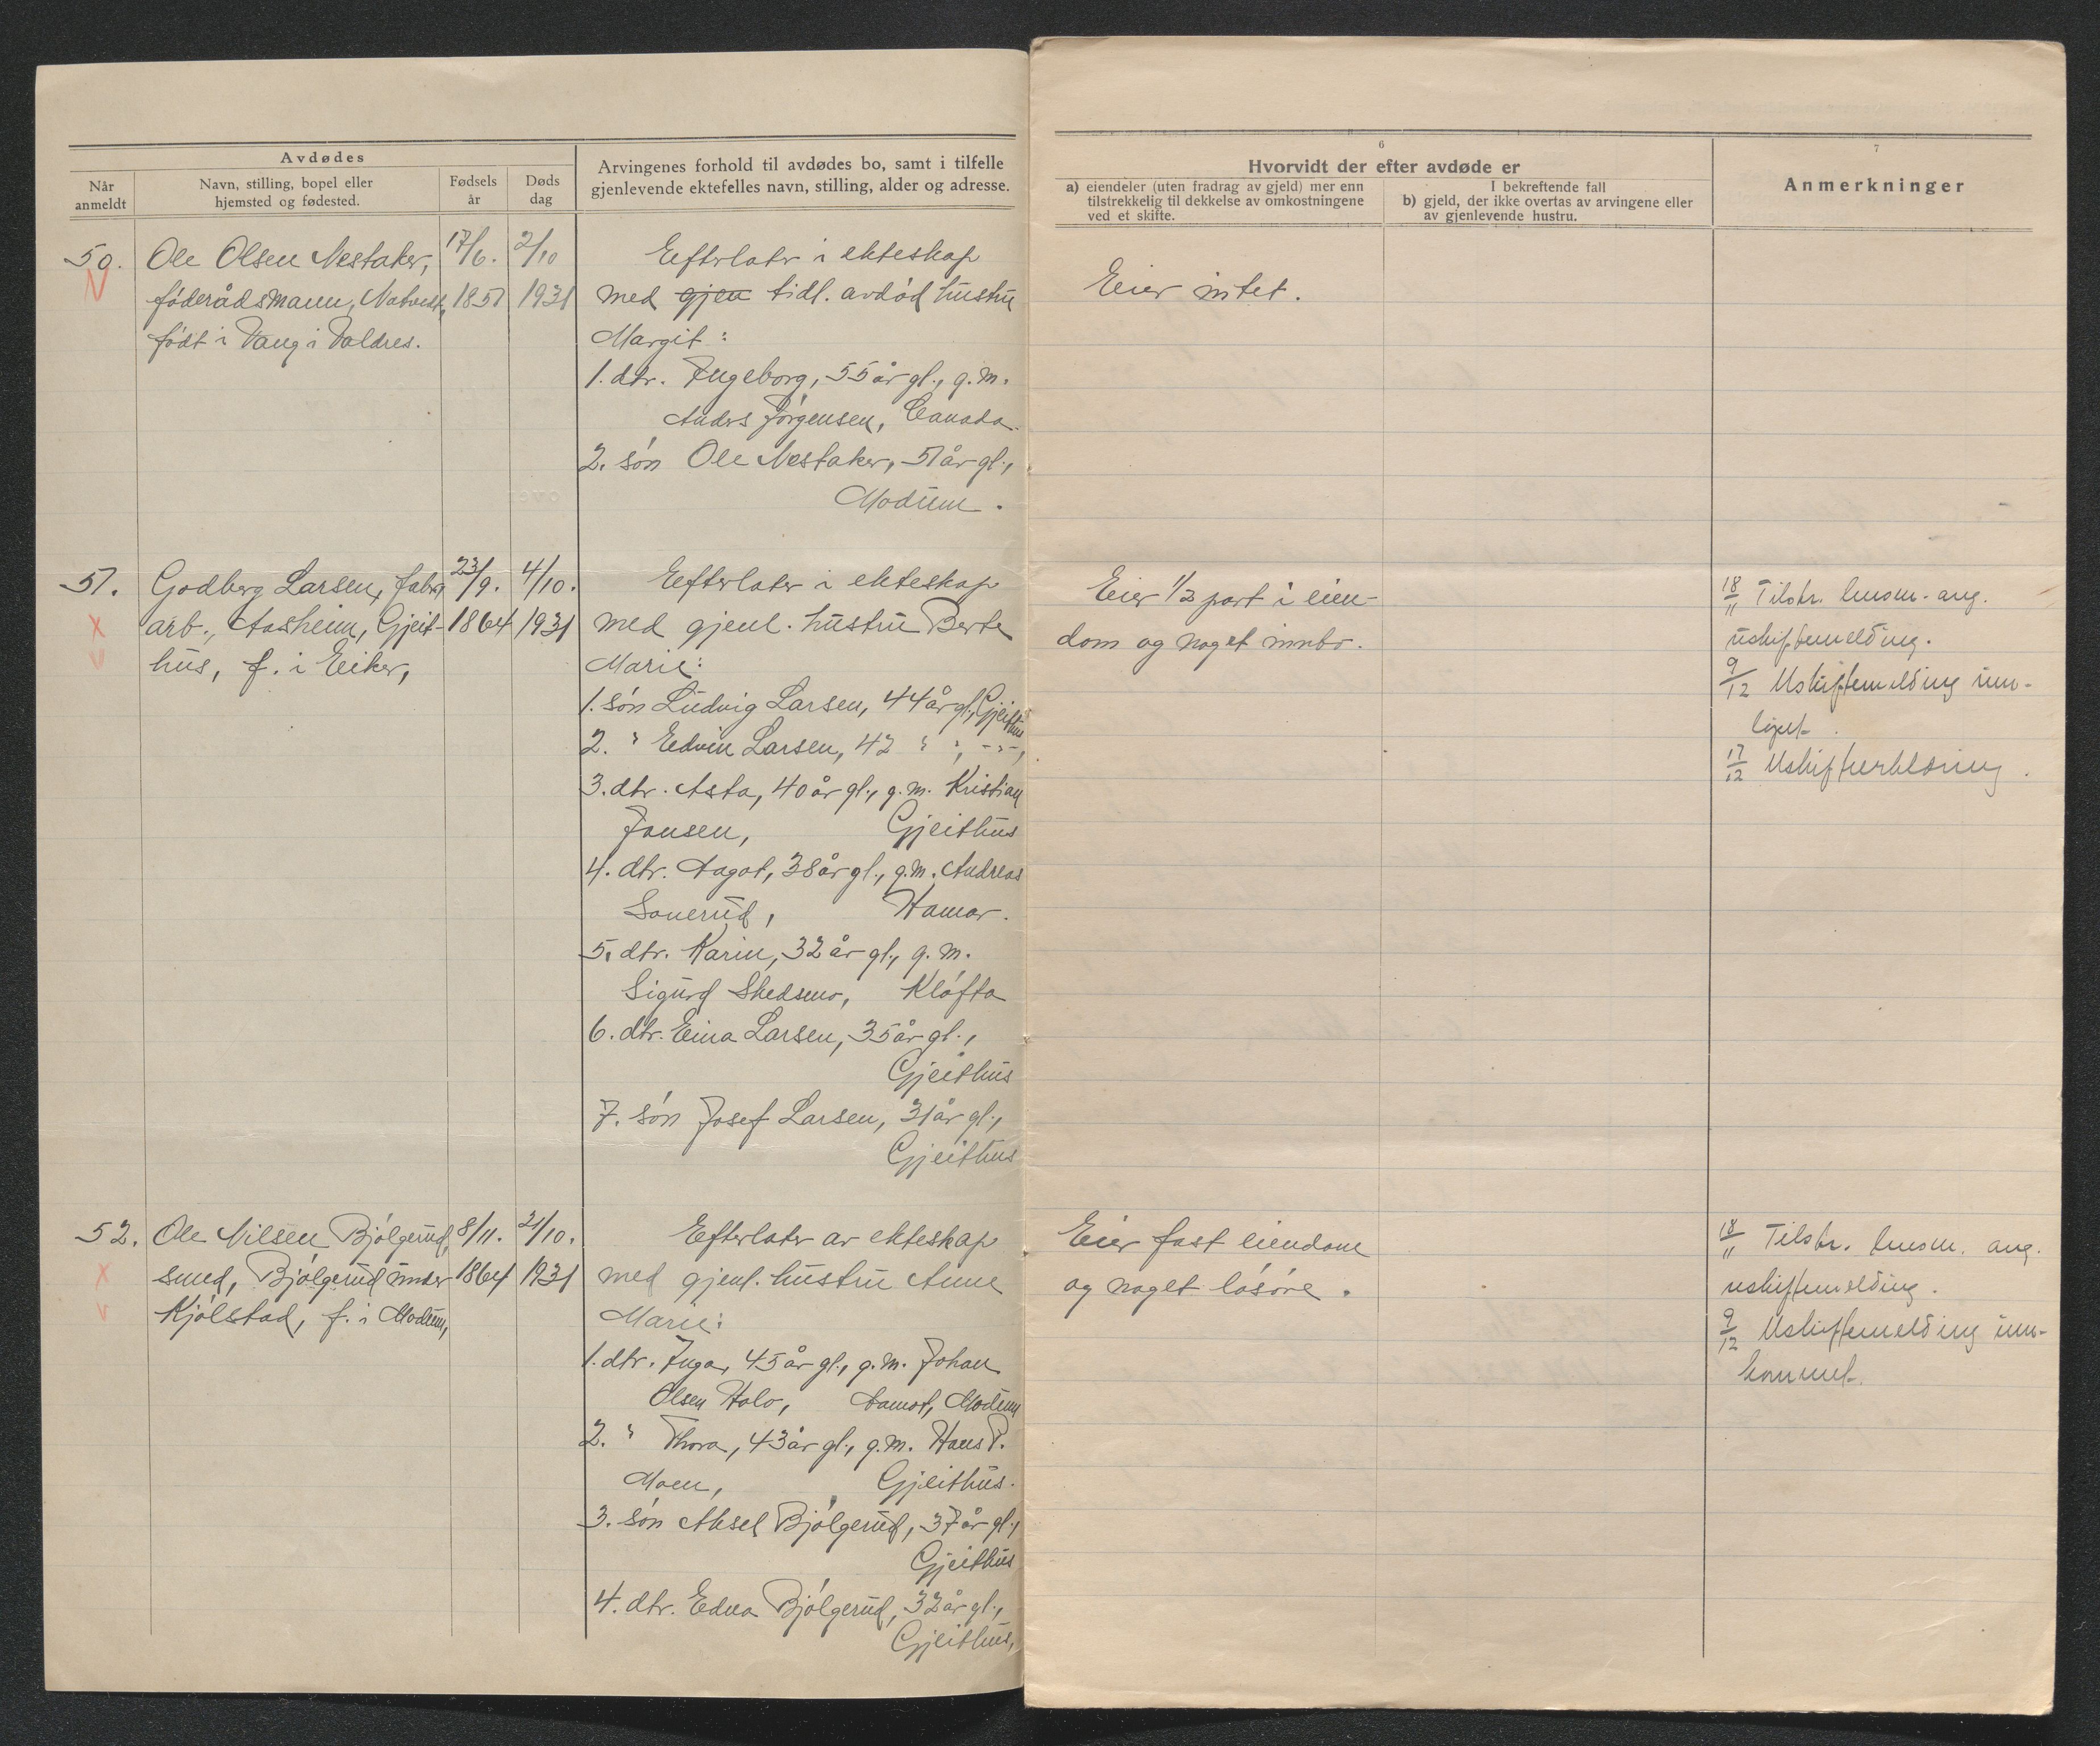 Avdødes
Når anmeldt
Navn, stilling, bopel eller hjemsted og fødested.
Fødsels år
Døds dag
Arvingenes forhold til avdødes bo, samt i tilfelle
gjenlevende ektefelles navn, stilling, alder og adresse.
6
Hvorvidt der efter avdøde er
a) eiendeler (uten fradrag av gjeld) mer enn
tilstrekkelig til dekkelse av omkostningene
ved et skifte.
I bekreftende fall
b) gjeld, der ikke overtas av arvingene eller
av gjenlevende hustru.
7
Anmerkninger
50. Ole Olsen Nestaker, 17/6. 2/10
føderådsmann, 1851 1931
født i Vang i Valdres.
Efterlater i ekteskap
med gjen tidl. avdød hustru
Margit:
1. dtr. Ingeborg, 55 år gl., g.m.
Anders Jørgensen, Canada.
2. søn Ole Nestaker, 51 år gl.,
Modum.
Eier intet.
51. Godberg Larsen, fabr. 23/9. 4/10.
arb., Aasheim, Gjeit- 1864 1931
hus, f. i Eiker,
Efterlater i ekteskap
med gjenl. hustru Berte
Marie:
1. søn Ludvig Larsen, 44 år gl., Gjeithus
2. " Edvin Larsen, 42 " ", -"-,
3. dtr. Asta, 40 år gl., g.m. Kristian
Jansen, Gjeithus
4. dtr. Aagot, 38 år gl., g.m. Andreas
Sonerud, Hamar.
5. dtr. Karin, 32 år gl., g.m.
Sigurd Skedsmo, Kløfta
6. dtr. Eina Larsen, 35 år gl.,
Gjeithus
7. søn Josef Larsen, 31 år gl.,
Gjeithus
Eier 1/3 part i eien-
dom og noget innbo.
18/11 Tilskr. lensm. ang.
uskiftemelding.
9/12 Uskiftemelding inn-
17/12 Uskifteerklæring.
52. Ole Nilsen Bjølgerud, 8/11. 21/10.
smed, Bjølgerud under 1864 1931
Kjølstad, f. i Modum,
Efterlater av ekteskap
med gjenl. hustru Anne
Marie:
1. dtr. Inga, 45 år gl., g.m. Johan
Olsen Halo, Aamot, Modum
2. " Thora, 43 år gl., g.m. Hans P.
Moen, Gjeithus.
3. søn Aksel Bjølgerud, 37 år gl.,
Gjeithus
4. dtr. Edna Bjølgerud, 32 år gl.,
Gjeithus,
Eier fast eiendom
og noget løsøre.
18/11 Tilskr. lensm. ang.
uskiftemelding.
9/12 Uskiftemelding inn-
kommet.